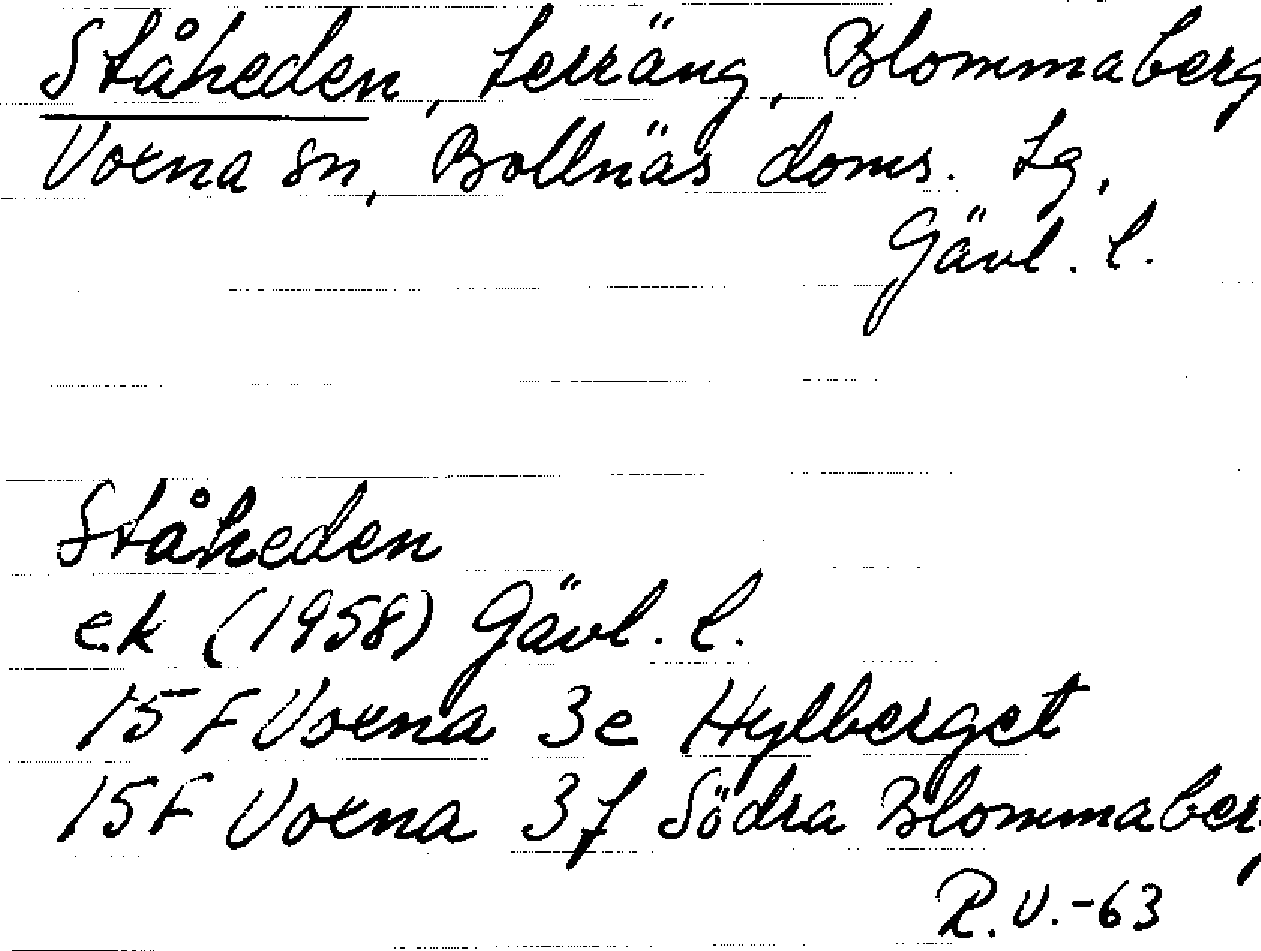 Ståheden, terräng, Blommaberg
Voxna sn, Bollnäs doms. tg,
Gävl. l.
Ståheden
ek (1958) Gävl. l.
15 F Voxna 3e Hylberget
15F Voxna 3f Södra Blommaberg
R.V.-63